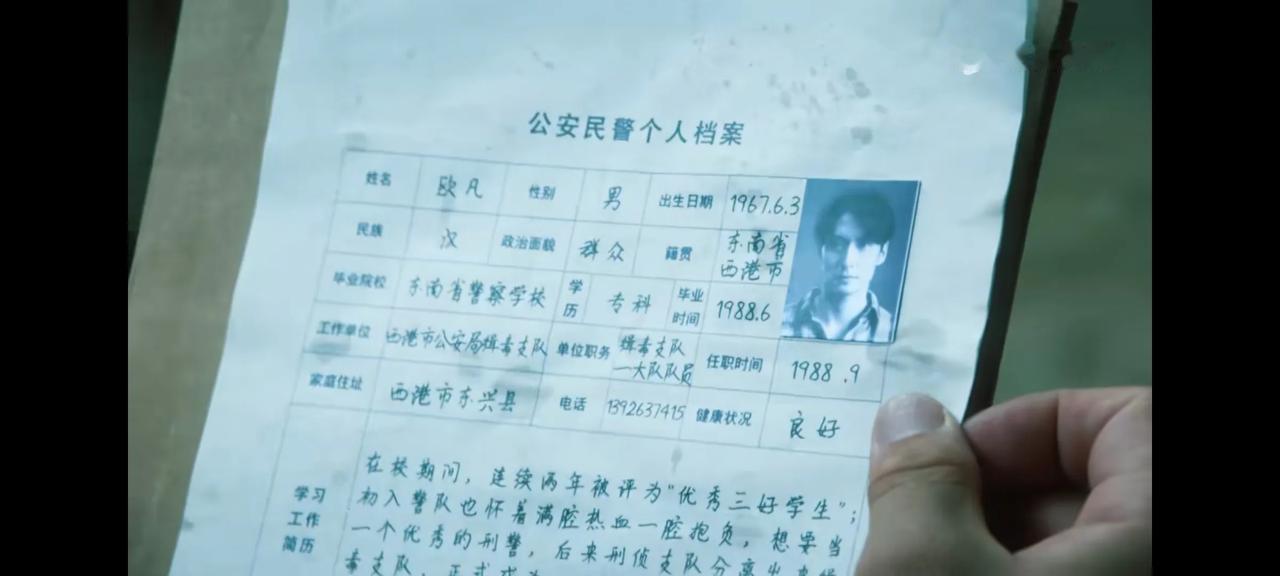 公安民警个人档案
姓名 欧凡 性别 男 出生日期 1967.6.3
民族 汉 政治面貌 群众 籍贯 东南省西港市
毕业院校 东南省警察学校 学历 专科 毕业时间 1988.6
工作单位 西港市公安局缉毒支队 单位职务 缉毒支队一大队队员 任职时间 1988.9
家庭住址 西港市东兴县 电话 1392637415 健康状况 良好
学习工作简历
在校期间，连续两年被评为"优秀三好学生"；
初入警队也怀着满腔热血一腔抱负，想要当
一个优秀的刑警，后来刑侦支队分离出来缉
毒支队，正式成为